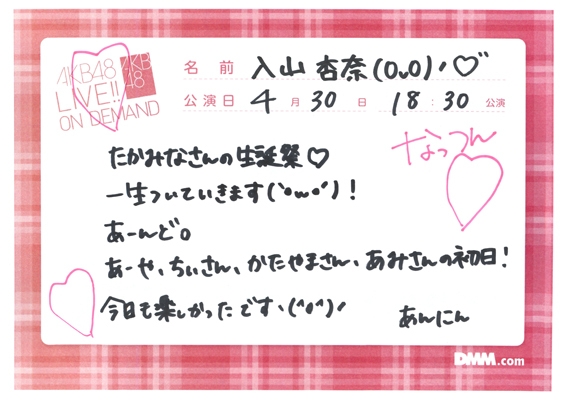 AKB48
LIVE!!
ON DEMAND
AKB
48
名前 入山 杏奈(OvO)ノ♡゛
公演日 4月30日 18:30公演
なっつん
たかみなさんの生誕祭♡
一生ついていきます(`・ω・´)!
あーんど。
あーや、ちぃさん、かたやまさん、あみさんの初日!
今日も楽しかったです、(^o^)ノ
あんにん
DMM.com